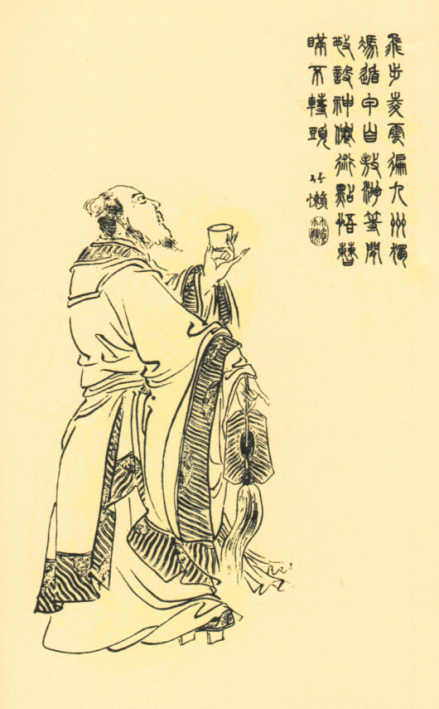 飛步夌雲徧九州獨
馮遁甲自敖游等閒
施設神僊術點悟曹
瞞不轉頭 竹嬾